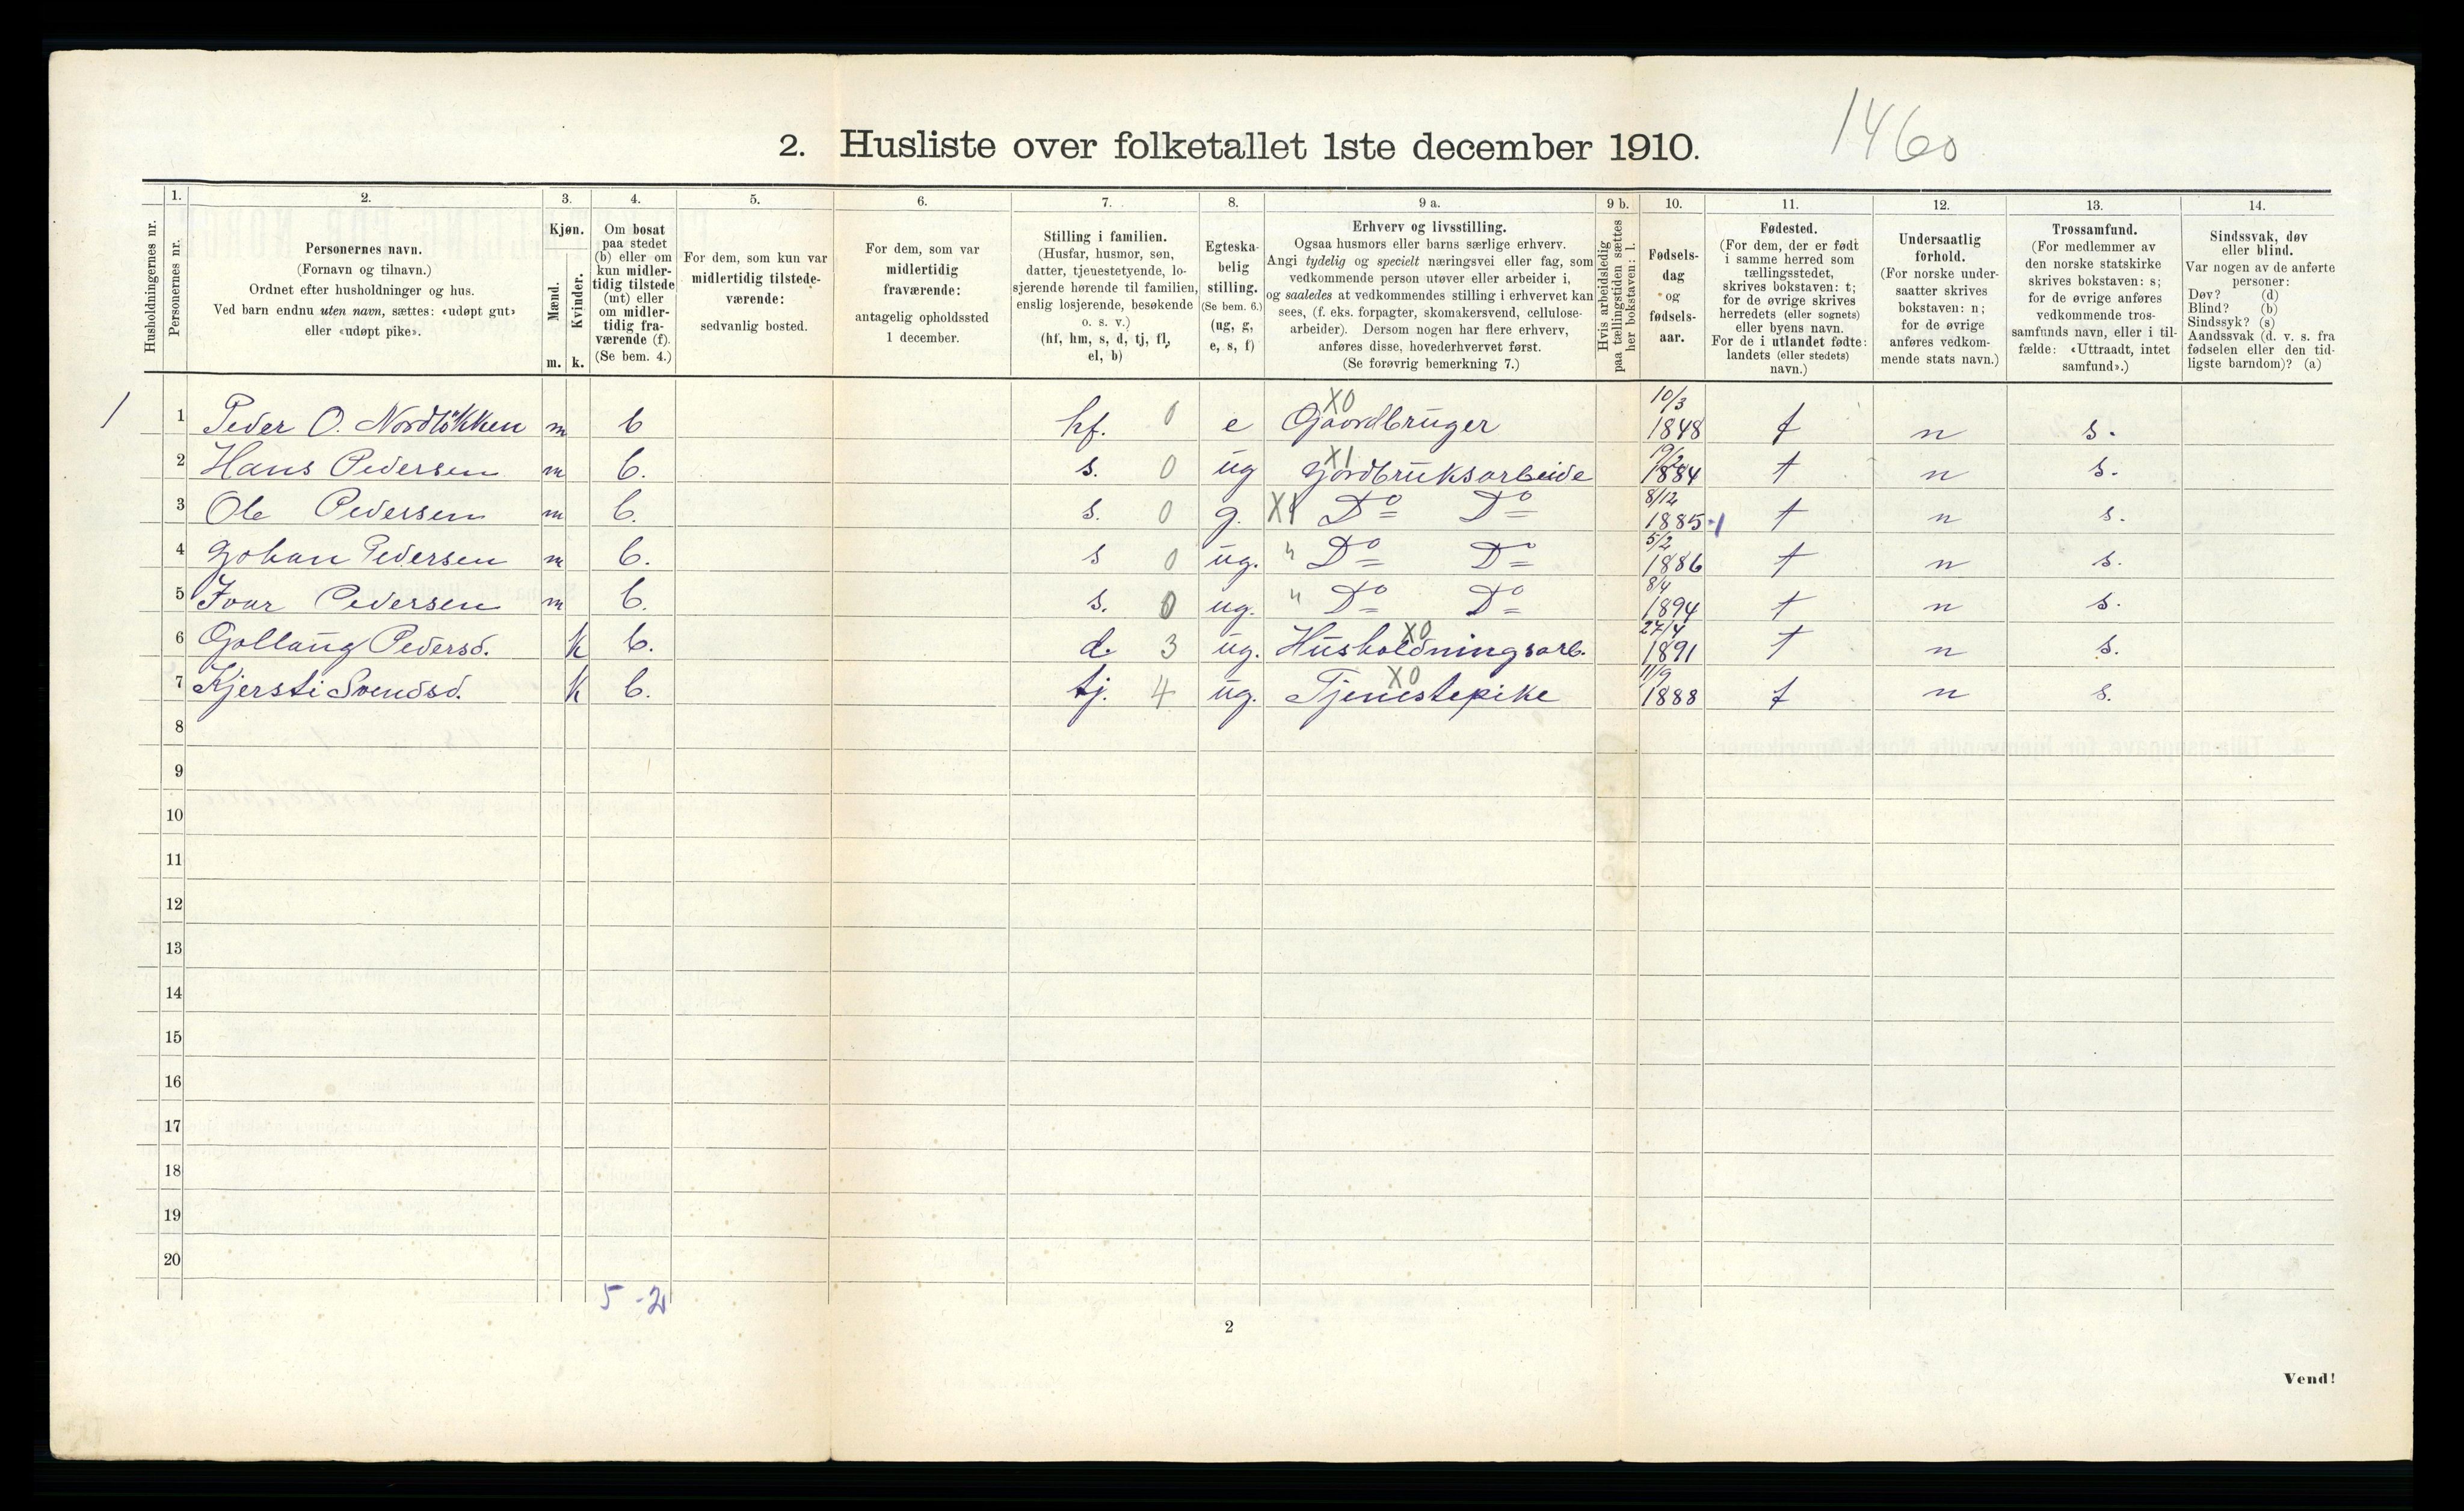 2. Husliste over folketallet 1ste december 1910.
1460
Husholdningernes nr.
1.
Personernes nr.
2.
Personernes navn.
(Fornavn og tilnavn.)
Ordnet efter husholdninger og hus.
Ved barn endnu uten navn, sættes: «udøpt gut»
eller «udøpt pike».
3.
Kjøn.
Mænd.
Kvinder.
m. k.
4.
Om bosat
paa stedet
(b) eller om
kun midler-
tidig tilstede
(mt) eller
om midler-
tidig fra-
værende (f).
(Se bem. 4.)
5.
For dem, som kun var
midlertidig tilstede-
værende:
sedvanlig bosted.
6.
For dem, som var
midlertidig
fraværende:
antagelig opholdssted
1 december.
7.
Stilling i familien.
(Husfar, husmor, søn,
datter, tjenestetyende, lo-
sjerende hørende til familien,
enslig losjerende, besøkende
o. s. v.)
(hf, hm, s, d, tj, fl,
el, b)
8.
Egteska-
belig
stilling.
(Se bem. 6.)
(ug, g,
e, s, f)
9 a.
Erhverv og livsstilling.
Ogsaa husmors eller barns særlige erhverv.
Angi tydelig og specielt næringsvei eller fag, som
vedkommende person utøver eller arbeider i,
og saaledes at vedkommendes stilling i erhvervet kan
sees, (f. eks. forpagter, skomakersvend, cellulose-
arbeider). Dersom nogen har flere erhverv,
anføres disse, hovederhvervet først.
(Se forøvrig bemerkning 7.)
9 b.
Hvis arbeidsledig
paa tællingstiden sættes
her bokstaven: l.
10.
Fødsels-
dag
og
fødsels-
aar.
11.
Fødested.
(For dem, der er født
i samme herred som
tællingsstedet,
skrives bokstaven: t;
for de øvrige skrives
herredets (eller sognets)
eller byens navn.
For de i utlandet fødte:
landets (eller stedets)
navn.)
12.
Undersaatlig
forhold.
(For norske under-
saatter skrives
bokstaven: n;
for de øvrige
anføres vedkom-
mende stats navn.)
13.
Trossamfund.
(For medlemmer av
den norske statskirke
skrives bokstaven: s;
for de øvrige anføres
vedkommende tros-
samfunds navn, eller i til-
fælde: «Uttraadt, intet
samfund».)
14.
Sindssvak, døv
eller blind.
Var nogen av de anførte
personer:
Døv? (d)
Blind? (b)
Sindssyk? (s)
Aandssvak (d. v. s. fra
fødselen eller den tid-
ligste barndom)? (a)
1 1 Peder O. Nordløkken m b hf. 0 e XO Gaardbruger 10/3 1848 t n s.
2 Hans Pedersen m b. s. 0 ug X1 Jordbruksarbeide 19/2 1884 t n s.
3 Ole Pedersen m b. s. 0 g. X1 Do Do 8/12 1885 t n s.
4 Johan Pedersen m b. s 0 ug. " Do Do 5/2 1886 t n s.
5 Ivar Pedersen m b. s. 0 ug. " Do Do 8/4 1894 t n s.
6 Gollaug Pedersd. k b. d. 3 ug. XO Husholdningsarb. 27/4 1891 t n s.
7 Kjersti Svendsd. k b. tj. 4 ug. XO Tjenestepike 11/9 1888 t n s.
8
9
10
11
12
13
14
15
16
17
18
19
20
5 - 2
2
Vend!